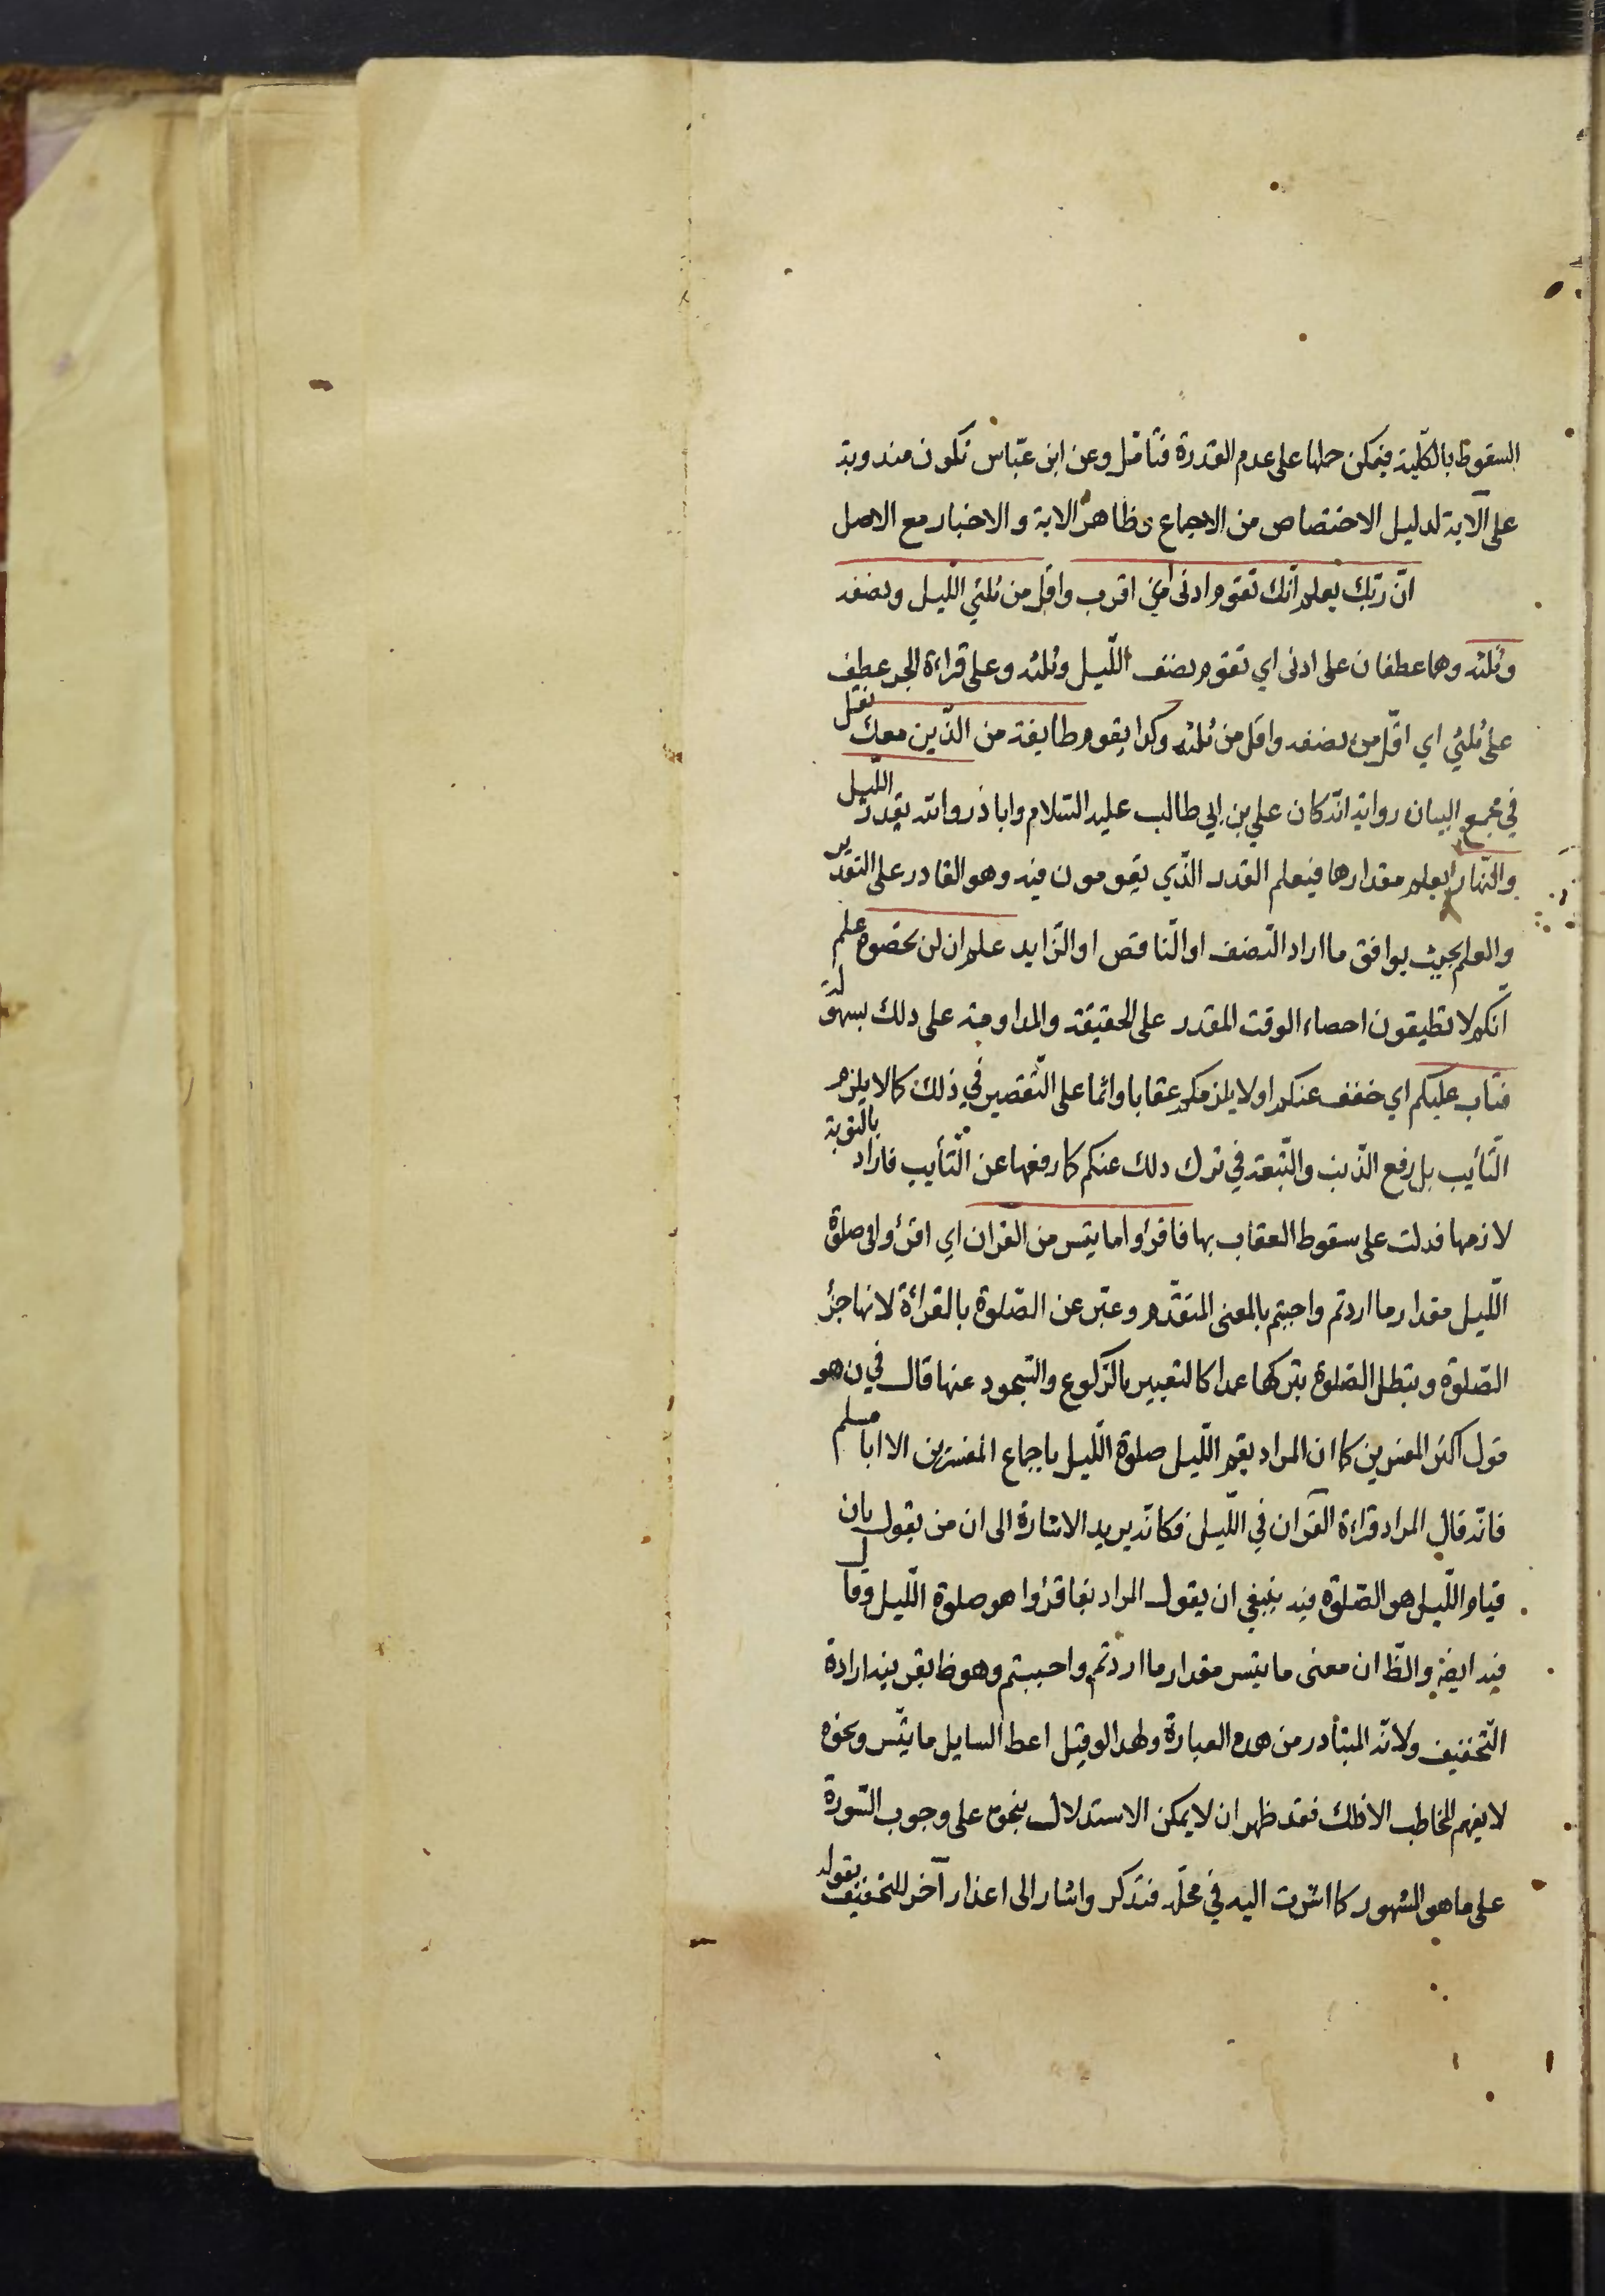 السقوط بالكلية فيمكن حملها على عدم القدرة فتأمّل وعن ابن عبّاس تكون مندوبة
على الآية لدليل الاختصاص من الاجماع وظاهر الاية والاخبار مع الاصل
انّ ربّك يعلم انّك تقوم ادنى اي اقرب واقلّ من ثلثي اللّيل ونصفه
وثلثه وهما عطفان على ادنى اي تقوم نصف اللّيل وثلثه وعلى قراءة الجر عطف
على ثلثي اي اقلّ من نصفه واقل من ثلثه وكذا يقوم طايفة من الّذين معك نقل
في مجمع البيان رواية انّه كان علي بن ابي طالب عليه السّلام واباذر واللّه يقدر اللّيل
والنّهار يعلم مقدارها فيعلم القدر الّذي يقومون فيه وهو القادر على التقدير
والعلم بحيث يوافق ما اراد النّصف او النّاقص او الزّايد علم ان لن تحصوه علم
انكم لا تطيقون احصاء الوقت المقدر على الحقيقة والمداومة على ذلك بسهولة
فتاب عليكم اي خفف عنكم او لا يلزمكم عقابا واثما على التّقصير في ذلك كما لا يلزم
التّأيب بل رفع الذّنب والتّبعة في ترك ذلك عنكم كما رفعها عن التّأيب فاراد بالتوبة
لازمها فدلت على سقوط العقاب بها فاقرؤا ما تيسر من القران اي اقرؤا في صلوة
اللّيل مقدار ما اردتم واحببتم بالمعنى المتقدّم وعبّر عن الصّلوة بالقرأة لانها جزؤ
الصّلوة وتبطل الصّلوة بتركها عمدا كالتعبير بالرّكوع والسّجود عنها قال في ن هو
قول اكثر المفسرين كما ان المراد بقم اللّيل صلوة اللّيل باجماع المفسرين الا ابا مسلم
فانّه قال المراد قراءة القرآن في اللّيل فكانّه يريد الاشارة الى ان من يقول بان
قيام اللّيل هو الصّلوة فيه ينبغي ان يقول المراد بفاقرؤا هو صلوة اللّيل وقال
فيه ايضا والظّ ان معنى ما تيسر مقدار ما اردتم واحببتم وهو ظ بقرينة ارادة
التّخفيف ولانّه المتبأدر من هذه العبارة ولهذا لو قيل اعط السايل ما تيسّر ونحوه
لا يفهم المخاطب الا ذلك فقد ظهر ان لا يمكن الاستدلال بنحوه على وجوب السّورة
على ما هو المشهور كما اشرت اليه في محلّه فتذكر واشار الى اعذار آخر للتخفيف بقوله